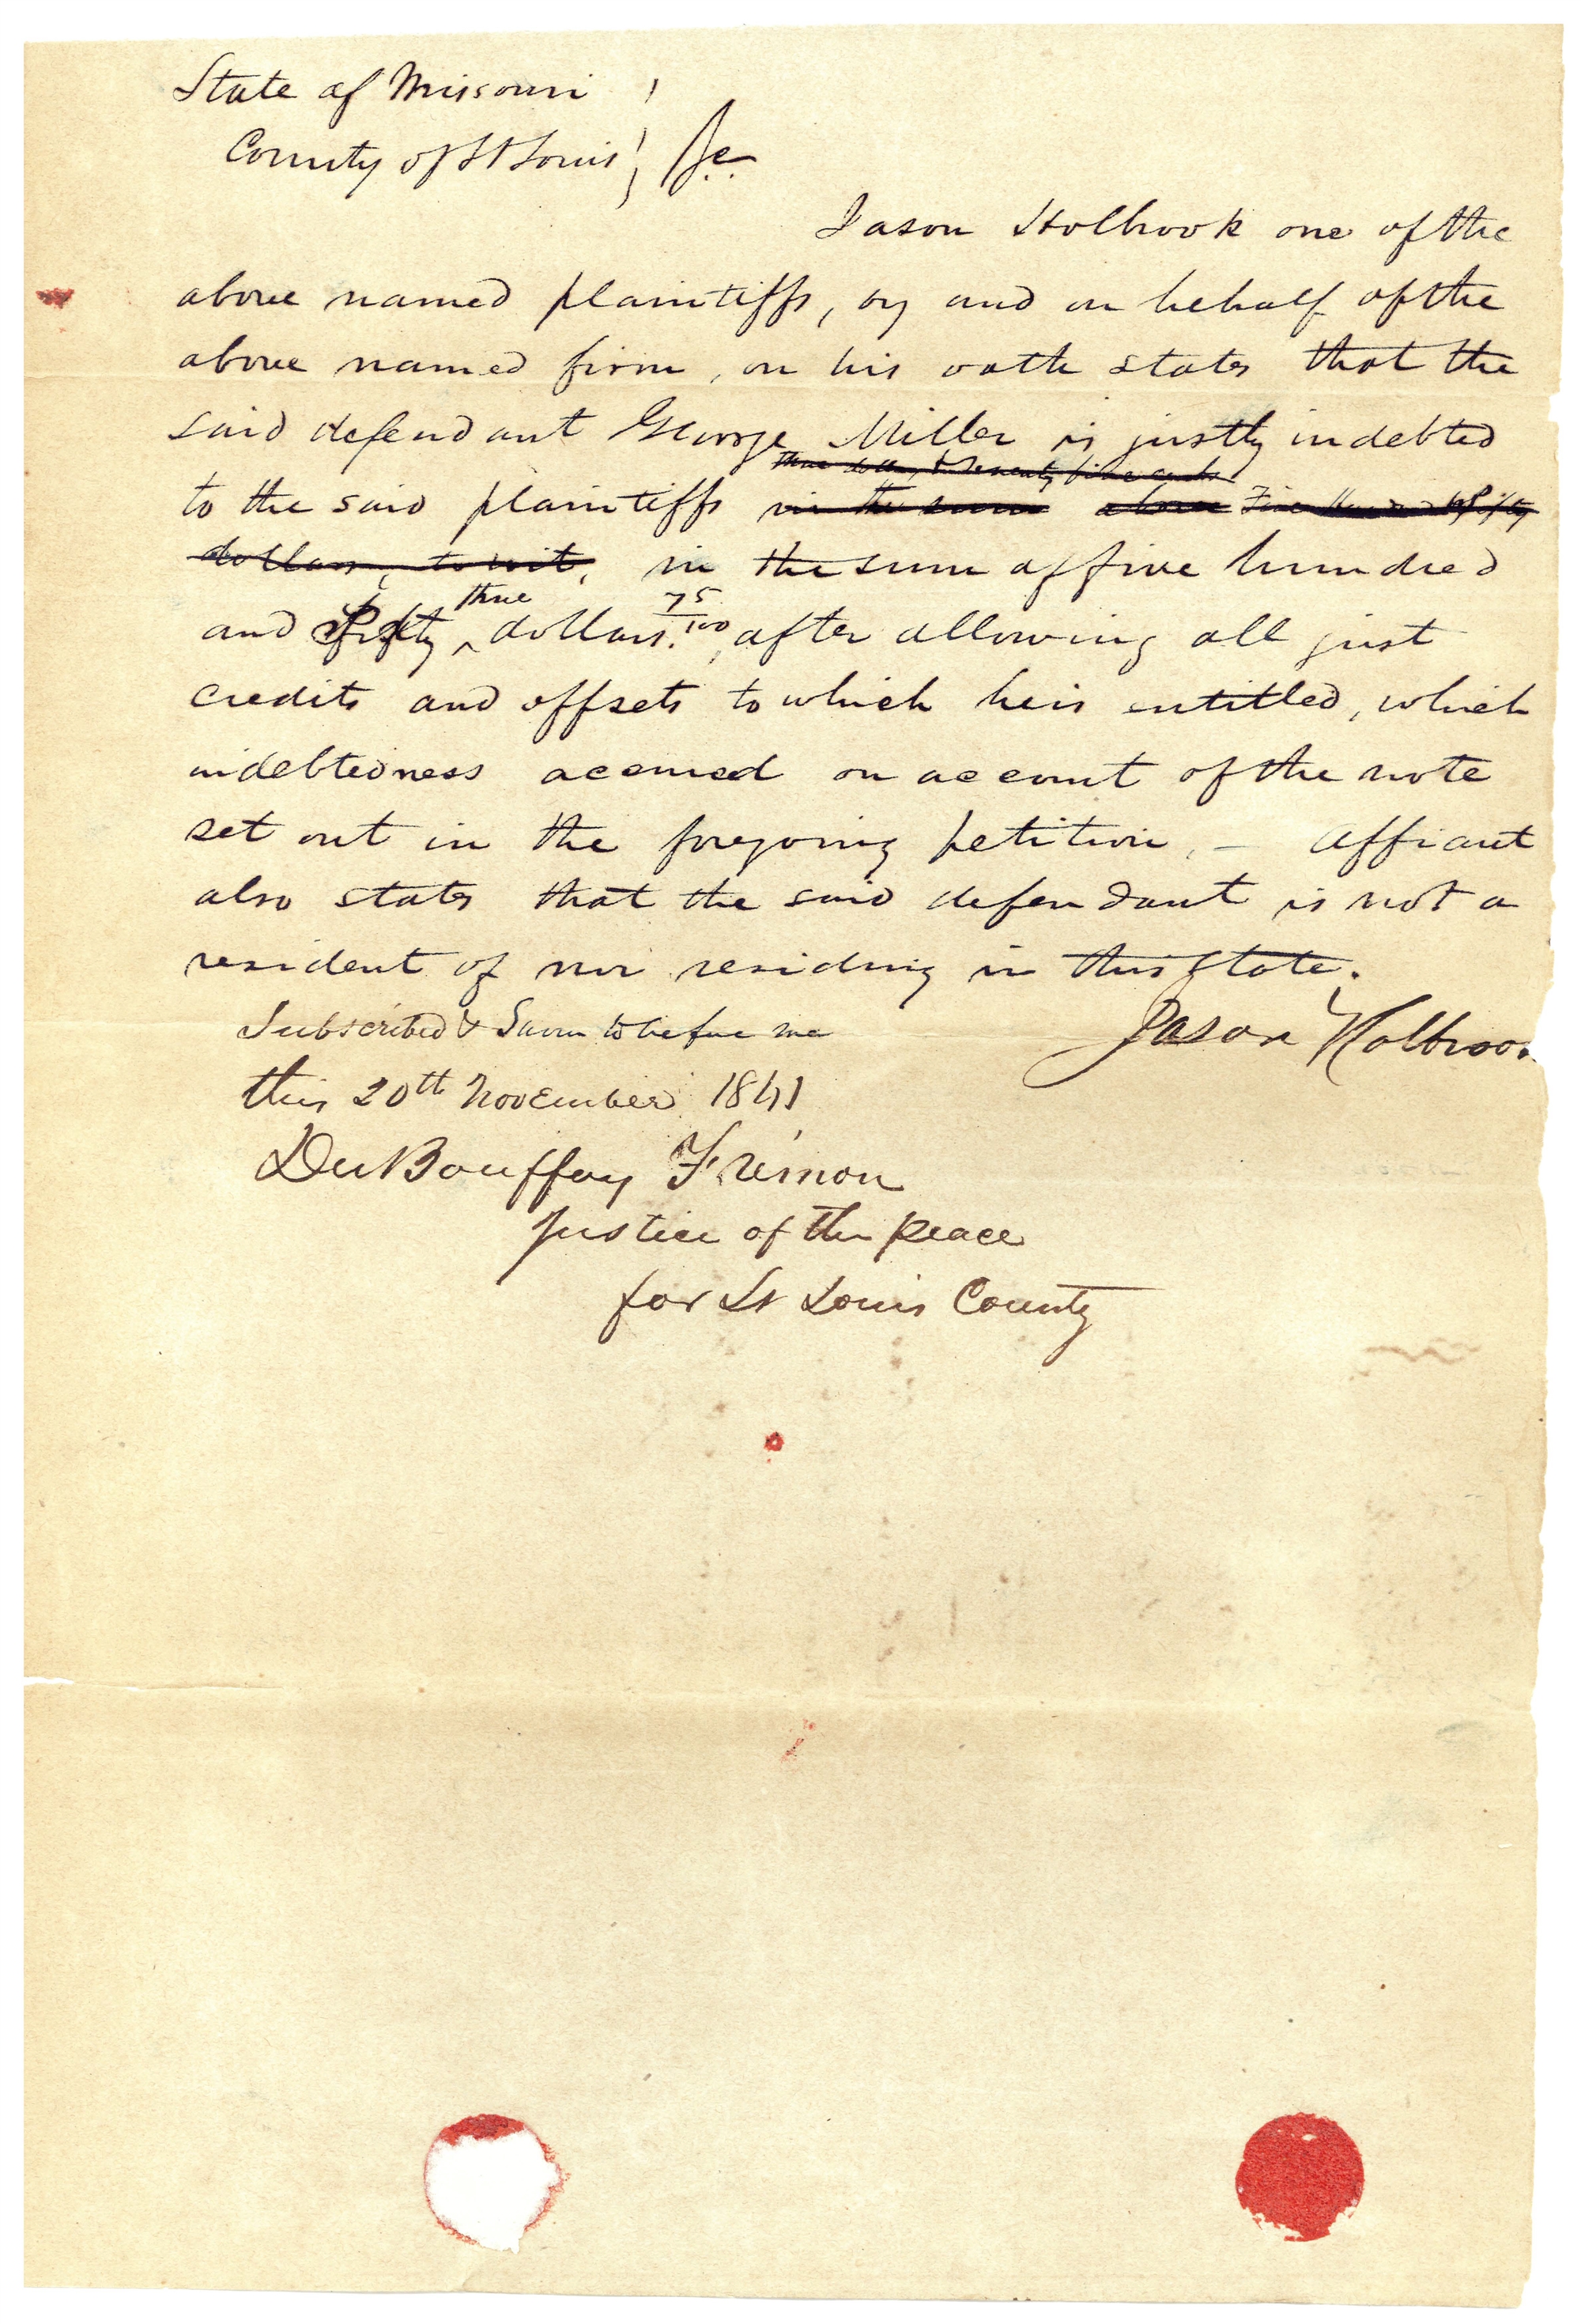 State of Missouri
County of St Louis } Sc.
Jason Holbrook one of the
above named plaintiffs, by and on behalf of the
above named firm, on his oath states that the
said defendant George Miller is justly indebted
three dollars & seventy five cents
to the said plaintiffs in the sum above Five Hundred & fifty
dollars, to wit, in the sum of five hundred
three 75
and fifty ^ dollars. 100, after allowing all just
credits and offsets to which he is entitled, which
indebtedness accrued on account of the note
set out in the foregoing petition, – Affiant
also states that the said defendant is not a
resident of nor residing in this State.
Subscribed & Sworn to before me
Jason Holbroo
this 20th November 1841
DuBouffay Frémon
Justice of the peace
for St Louis County